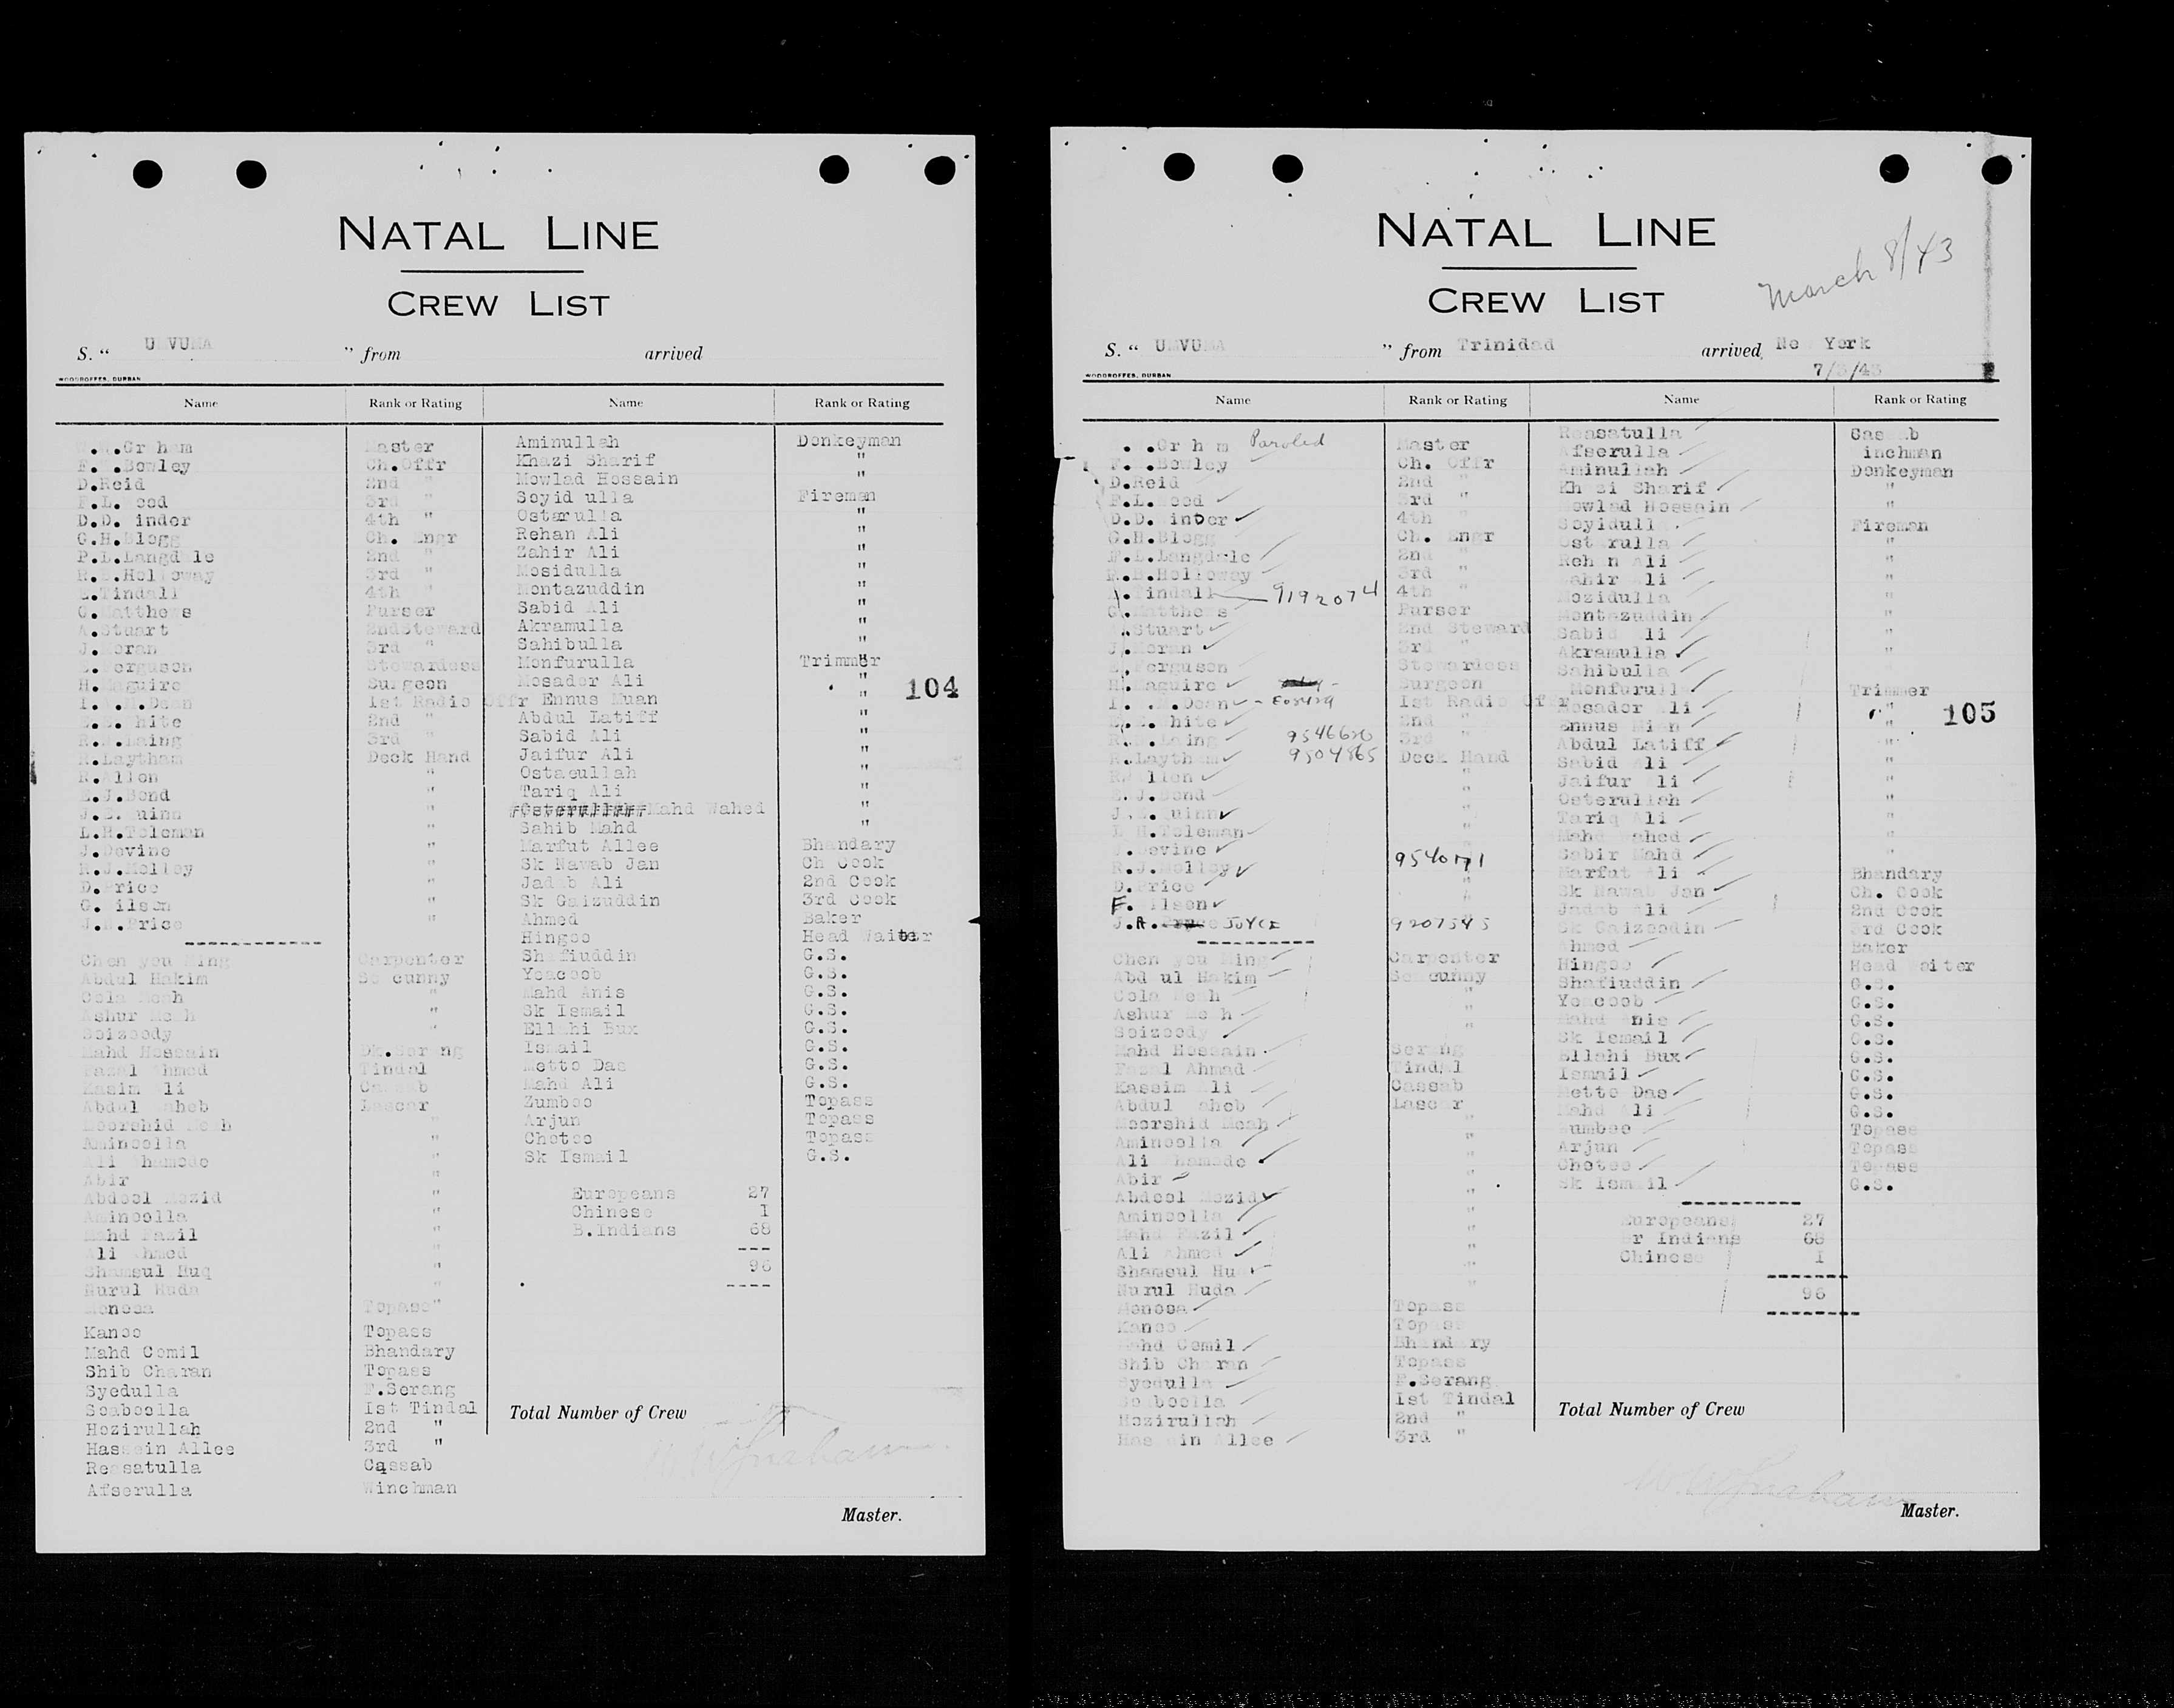 NATAL LINE
CREW LIST
S. “ U VUMA ” from arrived
WOODROFFES, DURBAN.
Name Rank or Rating Name Rank or Rating
Gr h m Master Aminullah Donkeyman
Bowley Ch.Offr Khazi Sharif "
D.Reid 2nd " Mowlad Hossain "
F.L. ood 3rd " Soyid ulla Fireman
D.D. inder 4th " Ostarulla "
G.H.Blogg Ch. Engr Rehan Ali "
P.L.Langdale 2nd " Zahir Ali "
R. .Holloway 3rd " Mosidulla "
.Tindall 4th " Montazuddin "
G.Matthews Purser Sabid Ali "
A.Stuart 2ndSteward Akramulla "
J.Moran 3rd " Sahibulla "
.Ferguson Stewardess Monfurulla Trimmer
H.Maguire Surgeon Mosador Ali "
104
I. . .Dean 1st Radio Offr Ennus Muan "
.White 2nd " Abdul Latiff "
R. .Laing 3rd " Sabid Ali "
R.Laytham Deck Hand Jaifur Ali "
R.Allen " Ostaeullah "
E.J.Bond " Tariq Ali "
J.E. uinn " Mahd Wahed "
L.H.Toleman " Sahib Mahd "
J.Devine " Marfut Allee Bhandary
R.J.Molloy " Sk Nawab Jan Ch Cook
D.Price " Jadab Ali 2nd Cook
G. ilson " Sk Gaizuddin 3rd Cook
J. .Price " Ahmed Baker
------------ Hingoo Head Waiter
Chen you Ming Carpenter Shafiuddin G.S.
Abdul Hakim Se cunny Yoacoob G.S.
Cola Meah " Mahd Anis G.S.
Ashur Meah " Sk Ismail G.S.
Soizoody " Ellahi Bux G.S.
Mahd Hossain Dk.Serang Ismail G.S.
Fazal Ahmed Tindal Metto Das G.S.
Kasim Ali Cassab Mahd Ali G.S.
Abdul aheb Lascar Zumboo Topass
Moorshid Meah " Arjun Topass
Aminoolla " Chotoo Topass
Ali hamode " Sk Ismail G.S.
Abir "
Abdool Mozid " Europeans 27
Aminoolla " Chinese I
Mahd Fazil " B.Indians 68
Ali Ahmed " ---
Shamsul Huq " 96
Nurul Huda " ----
Monosa Topass"
Kanoo Topass
Mahd Comil Bhandary
Shib Charan Topass
Syedulla F.Serang
Soaboolla Ist Tindal Total Number of Crew
Hozirullah 2nd "
Hassein Allee 3rd "
Reasatulla Cassab
Afserulla Winchman
Master.
NATAL LINE
March 8/43
CREW LIST
S. “ U VUMA ” from Trinidad arrived New York
7/3/43
WOODROFFES, DURBAN.
Name Rank or Rating Name Rank or Rating
Gr h m Paroled Master Reasatulla Cassab
Bowley Ch. Offr Afserulla inchman
D.Reid 2nd " Aminullah Donkeyman
F.L. ood 3rd " Khazi Sharif "
D.D. inder 4th " Mowlad Hossain "
G.H.Blogg Ch. Engr Soyidulla Fireman
P.L.Langdale 2nd " Ostarulla "
R. .Holloway 3rd " Rehan Ali "
.Tindall 9192074 4th " Zahir Ali "
G.Matthews Purser Mozidulla "
.Stuart 2nd Steward Montazuddin "
J.Moran 3rd " Sabid Ali "
.Ferguson Stewardess Akramulla "
H.Maguire Surgeon Sahibulla "
I. . .Dean 1st Radio Offr Monfurulla Trimmer
.White 2nd " Mosador Ali "
105
R. .Laing 9546620 3rd " Ennus Mian "
R.Laytham 9504865 Deck Hand Abdul Latiff "
R.Allen " Sabid Ali "
E.J.Bond " Jaifur Ali "
J.E.Quinn " Osterullah "
L H.Toleman " Tariq Ali "
J.Devine " Mahd Wahed "
R.J.Molloy 9540171 Sabir Mahd "
D.Price " Marfut Ali Bhandary
F. ilson " Sk Nawab Jan Ch. Cook
J.A. JOYCE 9207545 Jadab Ali 2nd Cook
------------ Sk Gaizoodin 3rd Cook
Chen you Ming Carpenter Ahmed Baker
Abd ul Hakim Se cunny Hingoo Head Waiter
Cola Meah " Shafiuddin G.S.
Ashur Meah " Yoacoob G.S.
Soizoody " Mahd Anis G.S.
Mahd Hossain Serang Sk Ismail G.S.
Fazal Ahmad Tindal Ellahi Bux G.S.
Kassim Ali Cassab Ismail G.S.
Abdul aheb Lascar Metto Das G.S.
Moorshid Meah " Mahd Ali G.S.
Aminoolla " Zumboo Topass
Ali hamode " Arjun Topass
Abir " Chotoo Topass
Abdool Mozid " Sk Ismail G.S.
Aminoolla "
Mahd Fazil " Europeans 27
Ali Ahmed " Br Indians 68
Shamsul Hu " Chinese I
Nurul Huda " 96
Monosa Topass
Kanoo Topass
Mahd Comil Bhandary
Shib Charan Topass
Syedulla F.Serang
Soaboolla Ist Tindal Total Number of Crew
Hozirullah 2nd "
Hassein Allee 3rd "
Master.